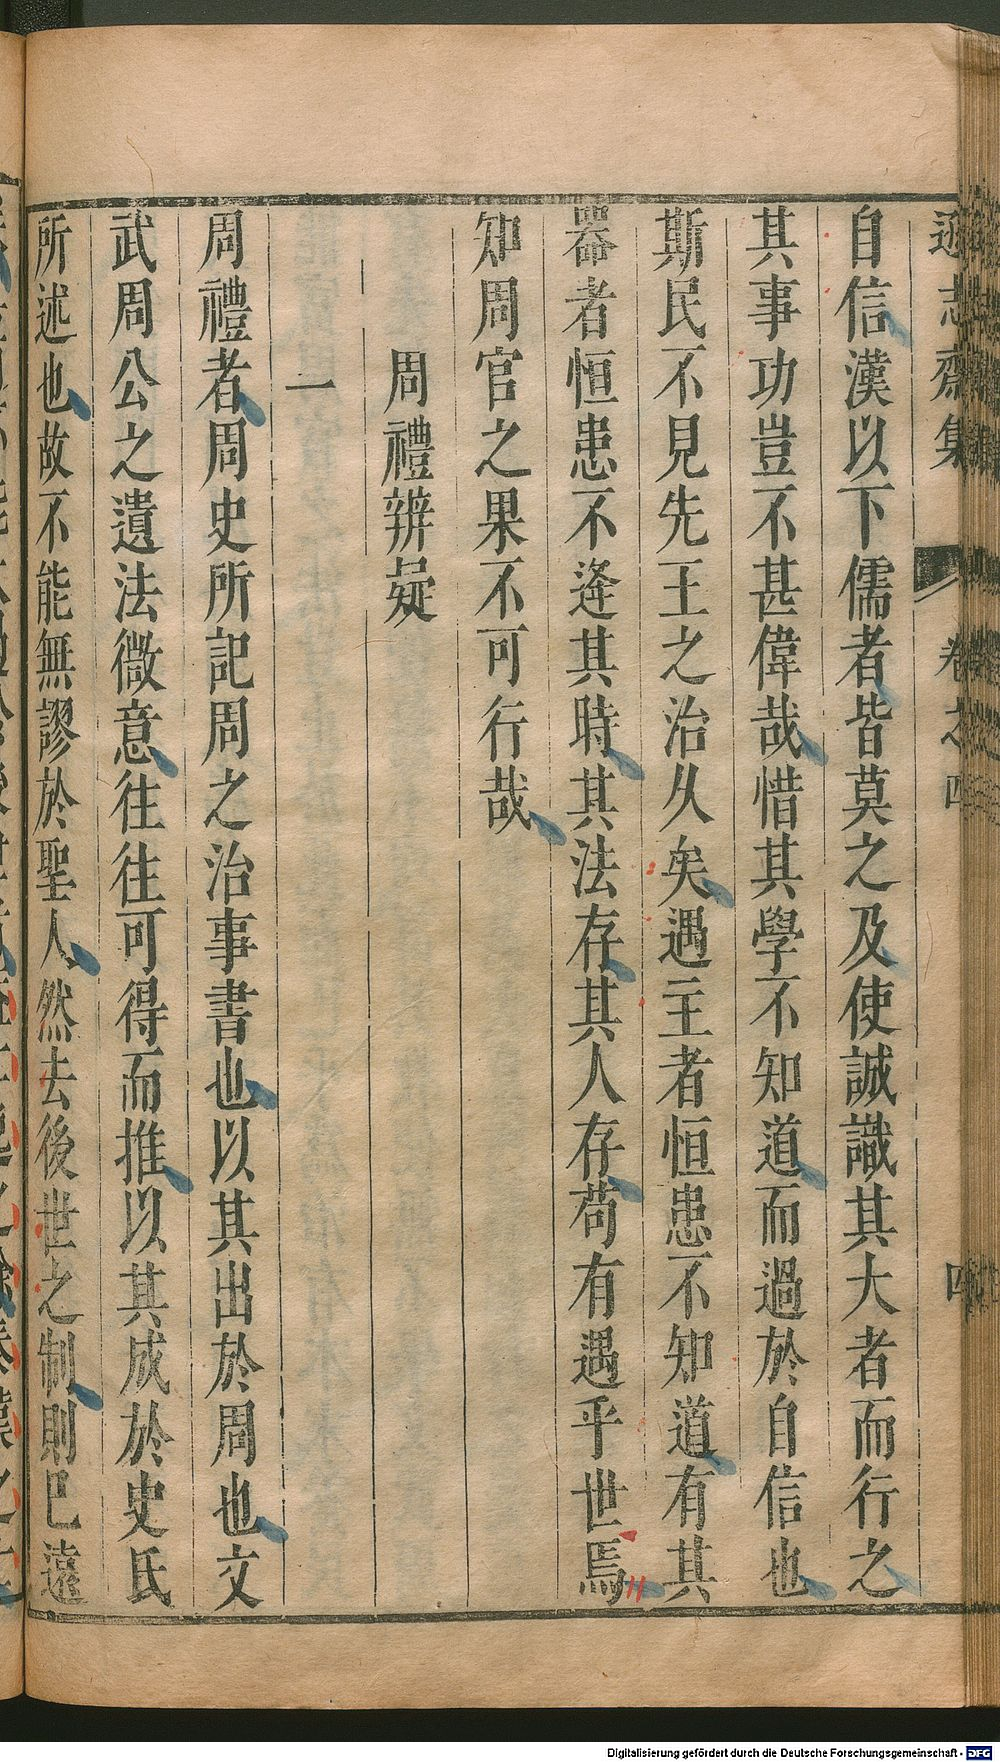 遜志齋集 卷之四 四
自信漢以下儒者皆莫之及使誠識其大者而行之
其事功豈不甚偉哉惜其學不知道而過於自信也
斯民不見先王之治久矣遇主者恒患不知道有其
器者恒患不逄其時其法存其人存苟有遇乎世焉
知周官之果不可行哉
周禮辨疑
一
周禮者周史所記周之治事書也以其出於周也文
武周公之遺法微意往往可得而推以其成於史氏
所述也故不能無謬於聖人然去後世之制則已遠
Digitalisierung gefördert durch die Deutsche Forschungsgemeinschaft - DFG